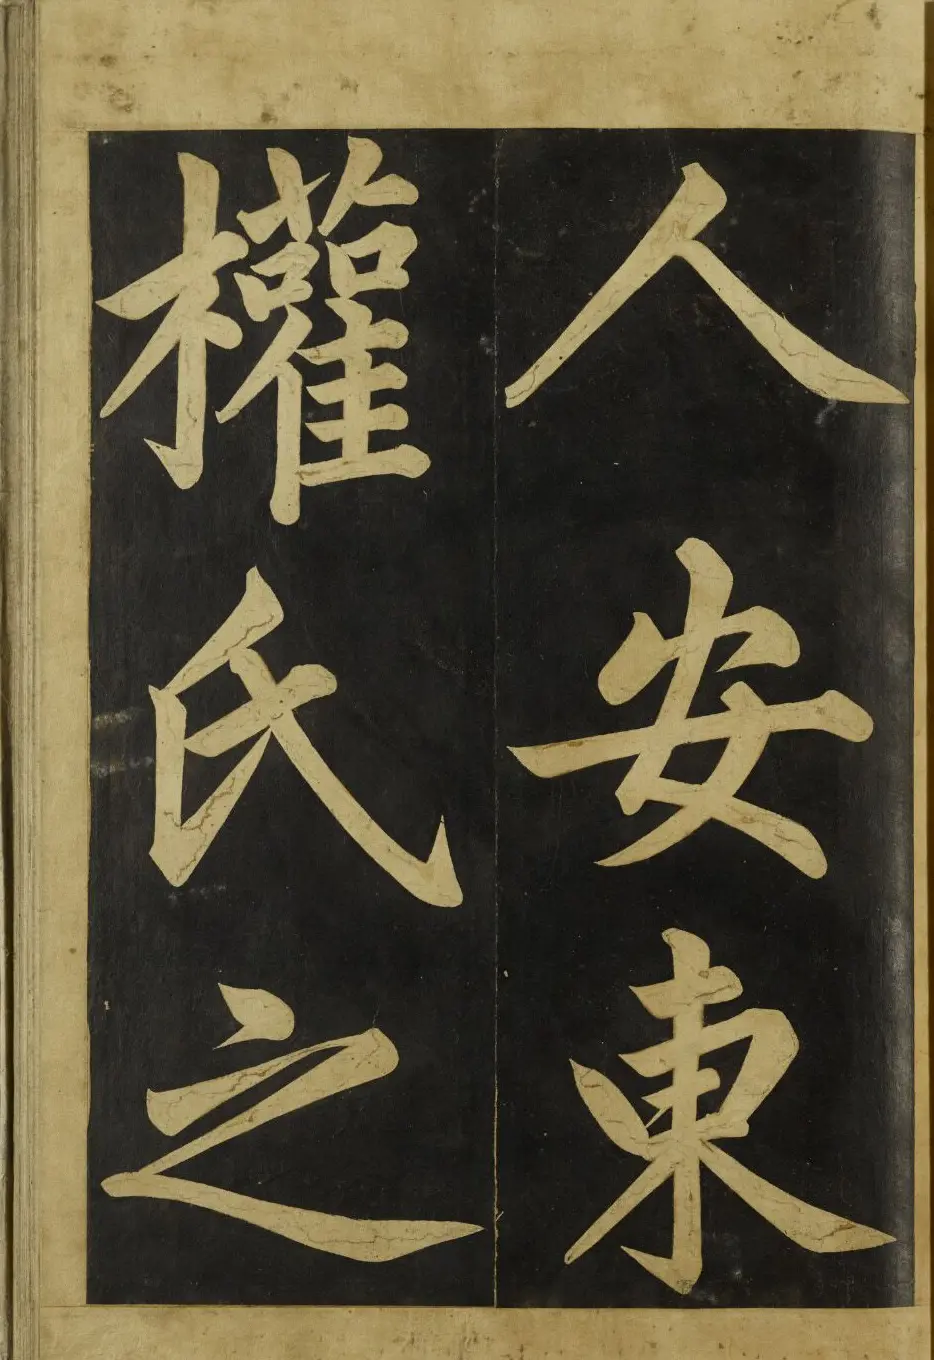 人安東
權氏之